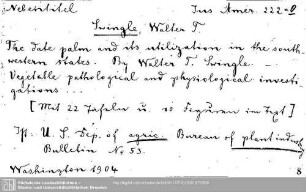 Nebentitel Jus Amer. 222-
Swingle, Walter T.
The date palm and its utilization in the south-
western states. By Walter T. Swingle. -
Vegetable pathological and physiological investi-
gations
[Mit 22 Tafeln u. 10 Figuren im Text]
U. S. Dep. of agric. Bureau of plant industry
Bulletin No 53.
Washington 1904